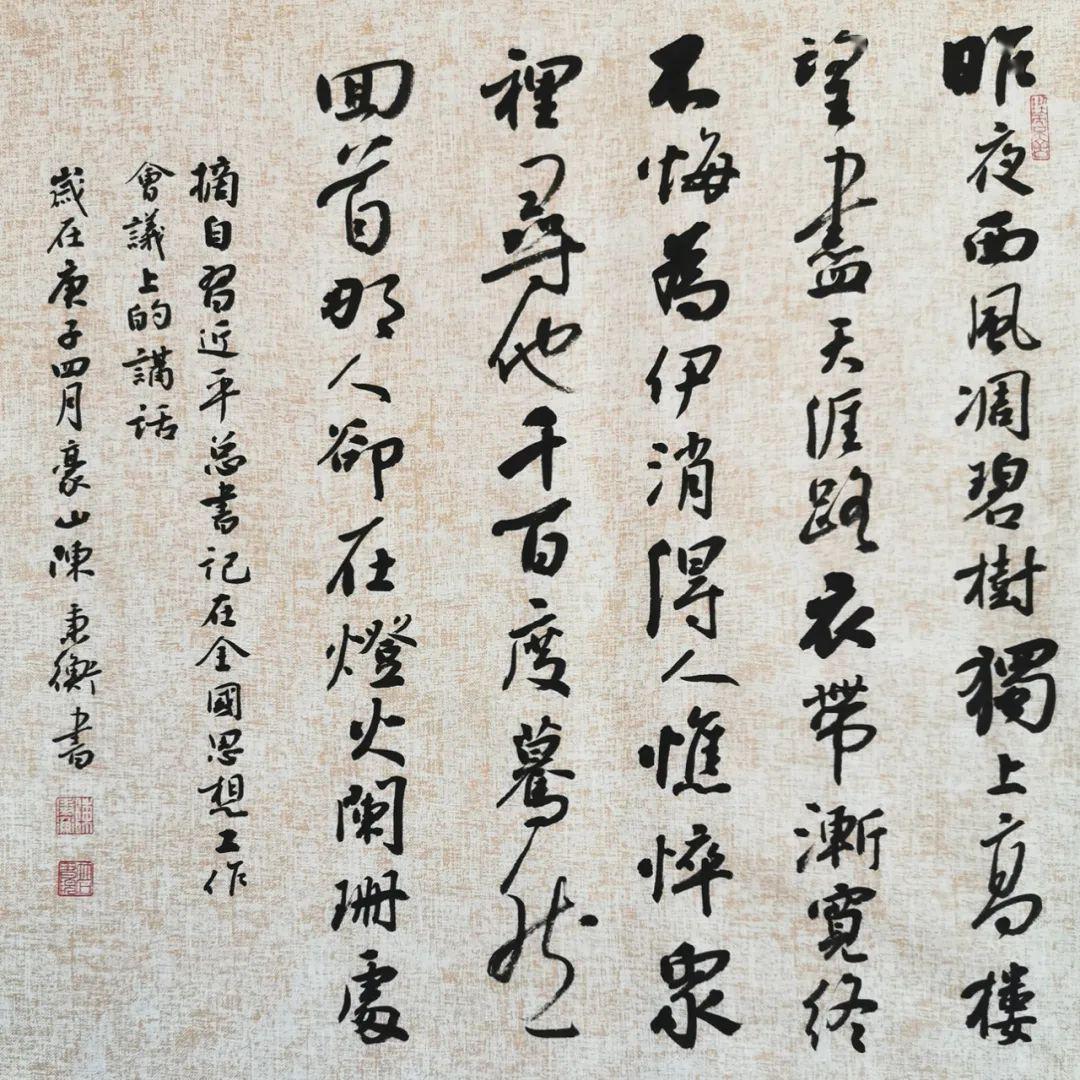 昨夜西風凋碧樹獨上高樓
望盡天涯路衣帶漸寬終
不悔為伊消得人憔悴眾
裡尋他千百度驀然
回首那人卻在燈火闌珊處
摘自習近平总書记在全國思想工作
會議上的講话
歲在庚子四月豪山陳秉衡書